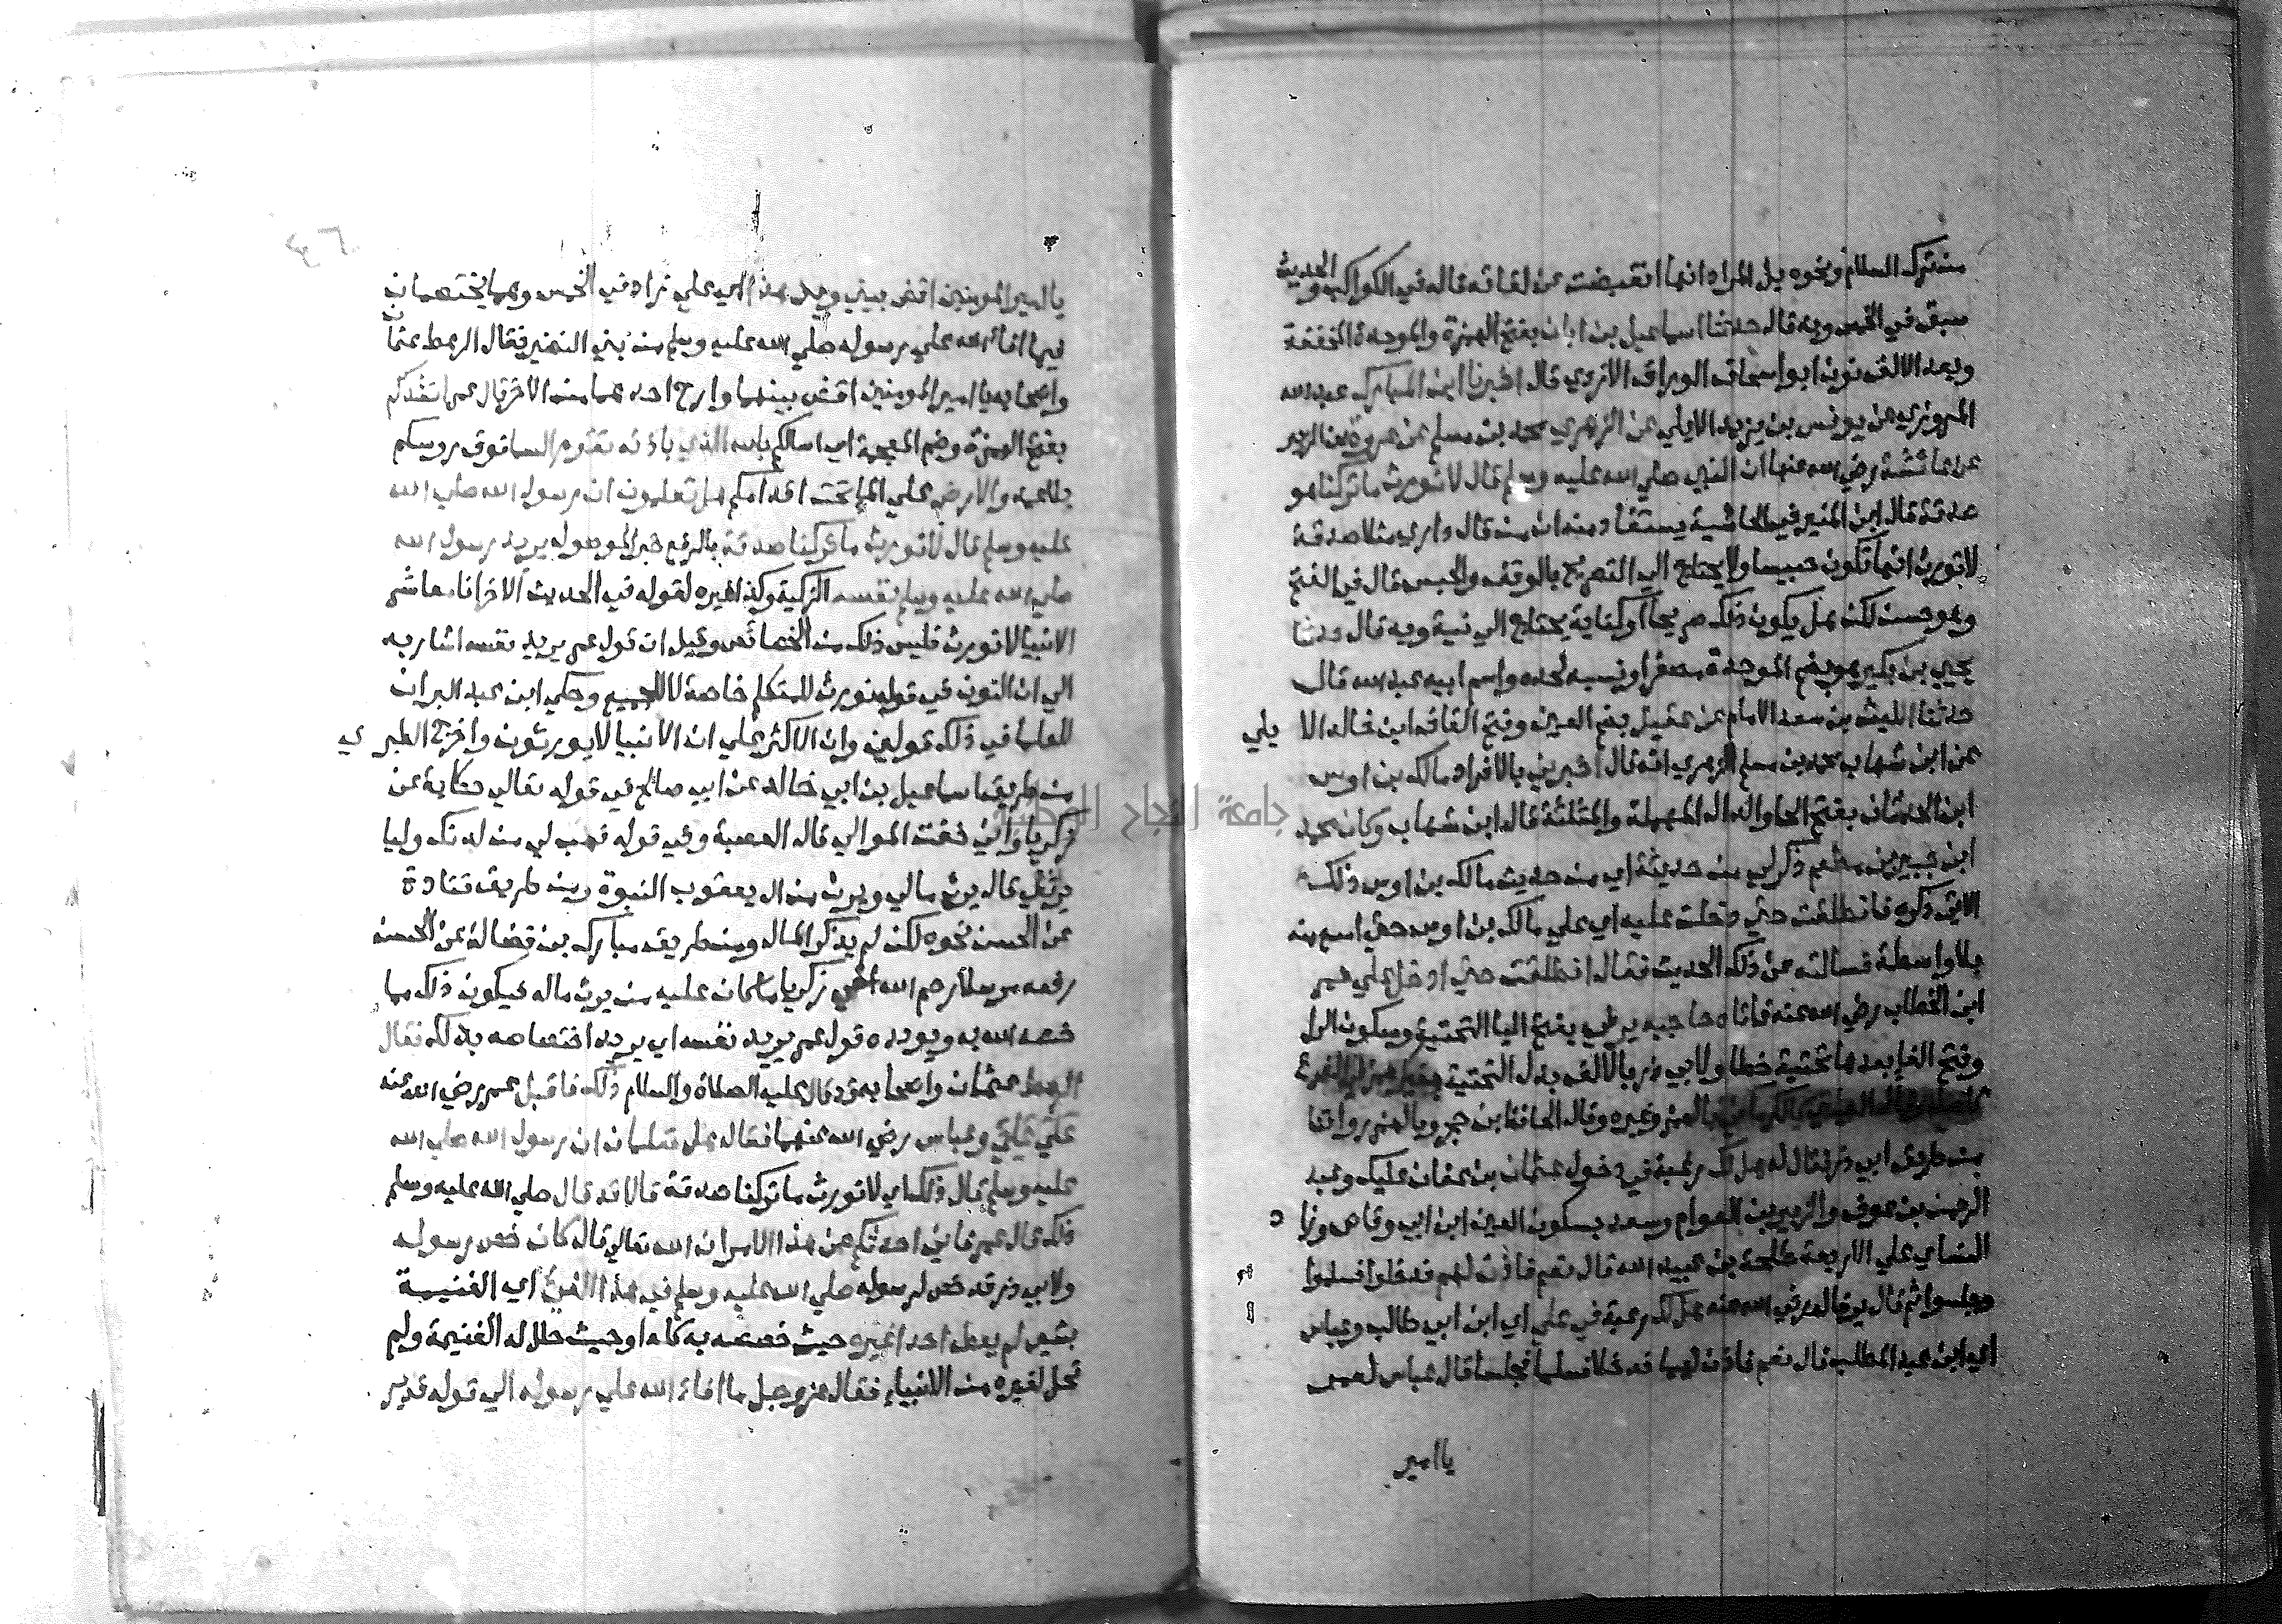 من ترك السلام ونحوه بل المراد انها انقبضت عن لقائه قاله في الكواكب والحديث
سبق في الخمس وبه قال حدثنا اسماعيل بن ابان بفتح الهمزة والموحدة المخففة
وبعد الالف نون ابو اسحاق الوراق الازدي قال اخبرنا ابن المبارك عبد الله
المروزي عن يونس بن يزيد الايلي عن الزهري محمد بن مسلم عن عروة بن الزبير
عن عائشة رضي الله عنها ان النبي صلي الله عليه وسلم قال لا نورث ما تركنا هو
صدقة قال ابن المنير في الحاشية يستفاد منه ان من قال داري مثلا صدقة
لا تورث انها تكون حبيسا ولا يحتاج الي التصريح بالوقف والحبس قال في الفتح
وهو حسن لكن هل يكون ذلك صريحا او كناية يحتاج الي نية وبه قال حدثنا
يحيي بن بكير هو بضم الموحدة مصغرا ونسبه لجده واسم ابيه عبد الله قال
حدثنا الليث بن سعد الامام عن عقيل بضم العين وفتح القاف ابن خالد الا يلي
عن ابن شهاب محمد بن مسلم الزهري انه قال اخبرني بالافراد مالك بن اوس
ابن الحدثان بفتح الحا والدال المهملة والمثلثة قال ابن شهاب وكان محمد
ابن جبير بن مطعم ذكر لي من حديثه اي من حديث مالك بن اوس ذلك
الاتي ذكره فانطلقت حتي دخلت عليه اي علي مالك بن اوس حتي اسمع منه
بلا واسطة فسالته عن ذلك الحديث فقال انطلقت حتي ادخل علي عمر
ابن الخطاب رضي الله عنه فاتاه حاجبه يرفي بفتح اليا التحتية وسكون الرا
وفتح الفا بعدها تحتية خطا ولابي ذر بالالف بدل التحتية
بالهمز وغيره وقال الحافظ ابن حجر وبالهمز روايتنا
من طريق ابي ذر فقال له هل لك رغبة في دخول عثمان بن عفان عليك وعبد
الرحمن بن عوف والزبير بن العوام وسعد بسكون العين ابن ابي وقاص وزا د
النساي علي الاربعة طلحة بن عبيد الله قال نعم فاذن لهم فدخلوا فسلموا
وجلسوا ثم قال يرفا لعمر رضي الله عنه هل لك رغبة في علي اي ابن ابي طالب وعباس
اي ابن عبد المطلب قال نعم فاذن لهما فدخلا فسلما فجلسا قال عباس لعمر
يا امير
يا امير المومنين اقض بيني وبين هذا اي علي زاد في الخمس وهما يختصمان
فيما افاء الله علي رسوله صلي الله عليه وسلم من بني النضير فقال الرهط عثمان
واصحابه يا امير المومنين اقض بينهما وارح احدهما من الاخر قال عمر انشدكم
بفتح الهمزة وضم المعجمة اي اسالكم بالله الذي باذنه تقوم السما فوق روسكم
بلا عمد والارض علي الما تحت اقدامكم هل تعلمون ان رسول الله صلي الله
عليه وسلم قال لا نورث ما تركنا صدقة بالرفع خبر الموصول يريد رسول الله
صلي الله عليه وسلم نفسه الزكية وكذا غيره لقوله في الحديث الاخر انا معاشر
الانبيا لا نورث فليس ذلك من الخصائص وقيل ان قول عمر يريد نفسه اشار به
الي ان النون في قوله نورث للمتكلم خاصة لا للجميع وحكي ابن عبد البر ان
للعلما في ذلك قولين وان الاكثر علي ان الانبيا لا يورثون واخرج الطبر ي
من طريق اسماعيل بن ابي خالد عن ابي صالح في قوله تعالي حكاية عن
زكريا واني خفت الموالي قال العصبة وفي قوله فهب لي من لدنك وليا
يرثني قال يرث مالي ويرث من ال يعقوب النبوة ومن طريق قتادة
عن الحسن نحوه لكن لم يذكر المال ومن طريق مبارك بن فضالة عن الحسن
رفعه مرسلا رحم الله اخي زكريا ما كان عليه من يرث ماله فيكون ذلك مما
خصه الله به ويويده قول عمر يريد نفسه اي يريد اختصاصه بذلك فقال
الرهط عثمان واصحابه قد قال عليه الصلاة والسلام ذلك فاقبل عمر رضي الله عنه
علي علي وعباس رضي الله عنهما فقال هل تعلمان ان رسول الله صلي الله
عليه وسلم قال ذلك اي لا نورث ما تركنا صدقة قالا قد قال صلي الله عليه وسلم
ذلك قال عمر فاني احدثكم عن هذا الامر ان الله تعالي قال كان خص رسوله
ولابي ذر قد خص لرسوله صلي الله عليه وسلم في هذا الفئ اي الغنيمة
بشي لم يعطه احدا غيره حيث خصصه به كله او حيث حلل له الغنيمة ولم
تحل لغيره من الانبياء فقال عز وجل ما افاء الله علي رسوله الي قوله قدير
جامعة النجاح الوطنية